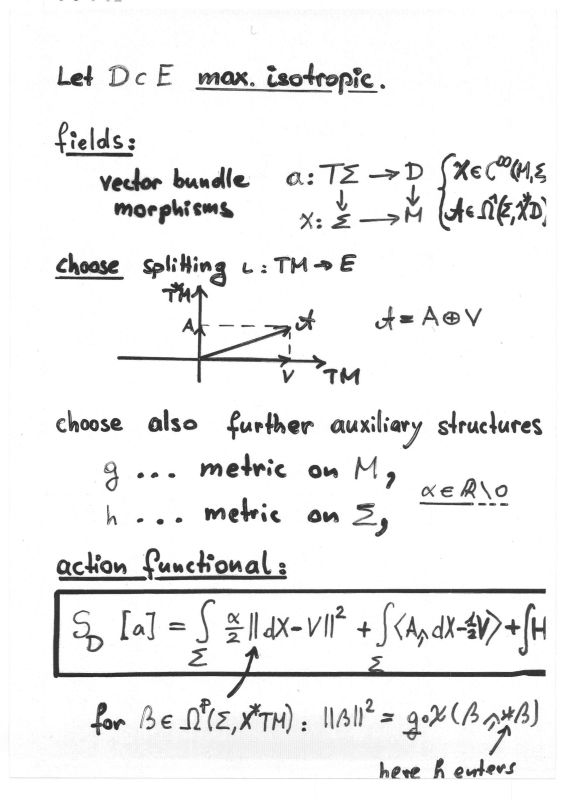 Let D ⊂ E max. isotropic.
fields:
vector bundle morphisms
a: TΣ → D
↓ ↓
X: Σ → M
{ X ∈ C^∞(M,Σ
{ A ∈ Ω¹(Σ,X*D)
choose splitting ι: TM → E
T*M
A
A
V
TM
A = A ⊕ V
choose also further auxiliary structures
g ... metric on M,
h ... metric on Σ,
α ∈ R\0
action functional:
S_D [a] = ∫_Σ α/2 ||dX-V||² + ∫_Σ ⟨A ∧, dX-½V⟩ + ∫H
for β ∈ Ω^p(Σ, X*TM): ||β||² = g∘X (β ∧ *β)
here h enters